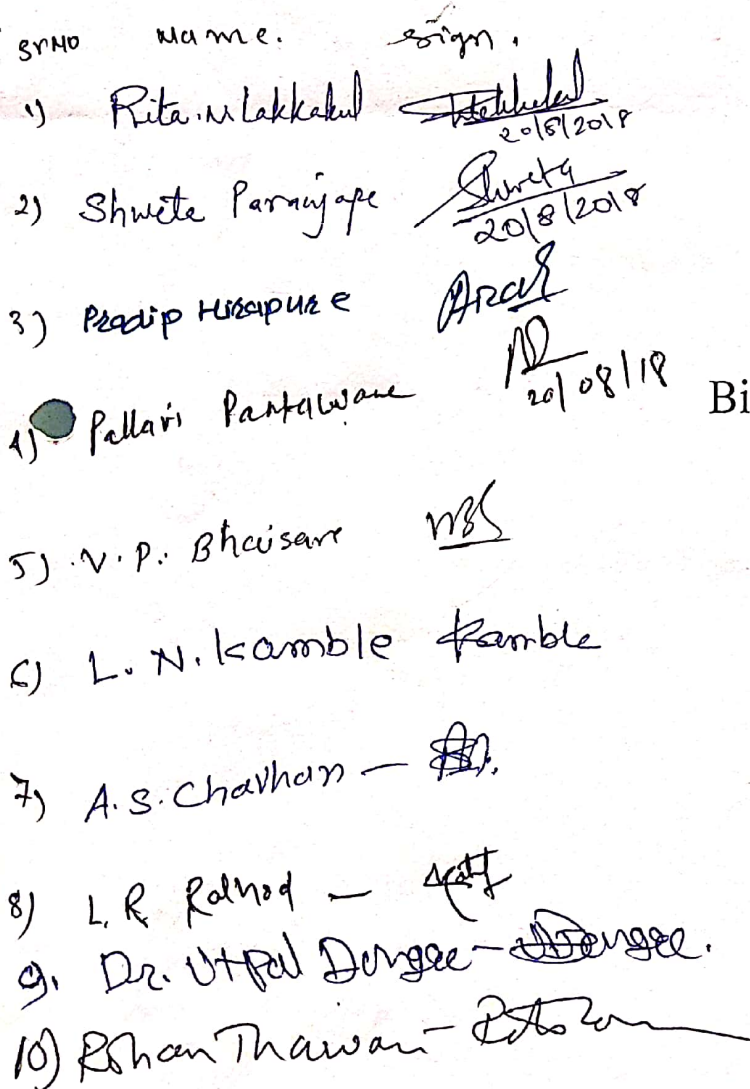 Sr No Name. Sign.
1) Rita.N Lakkakul
20/8/2018
2) Shweta Paranjape Shweta
20/8/2018
3) Pradip Hirapure
4) Pallavi Pantawane
20/08/18
Bi
5) V.P. Bhaisare
6) L. N. Kamble Kamble
7) A.S. Chavhan –
8) L. R. Rathod –
9. Dr. Utpal Dongre –
10) Rohan Thawari –